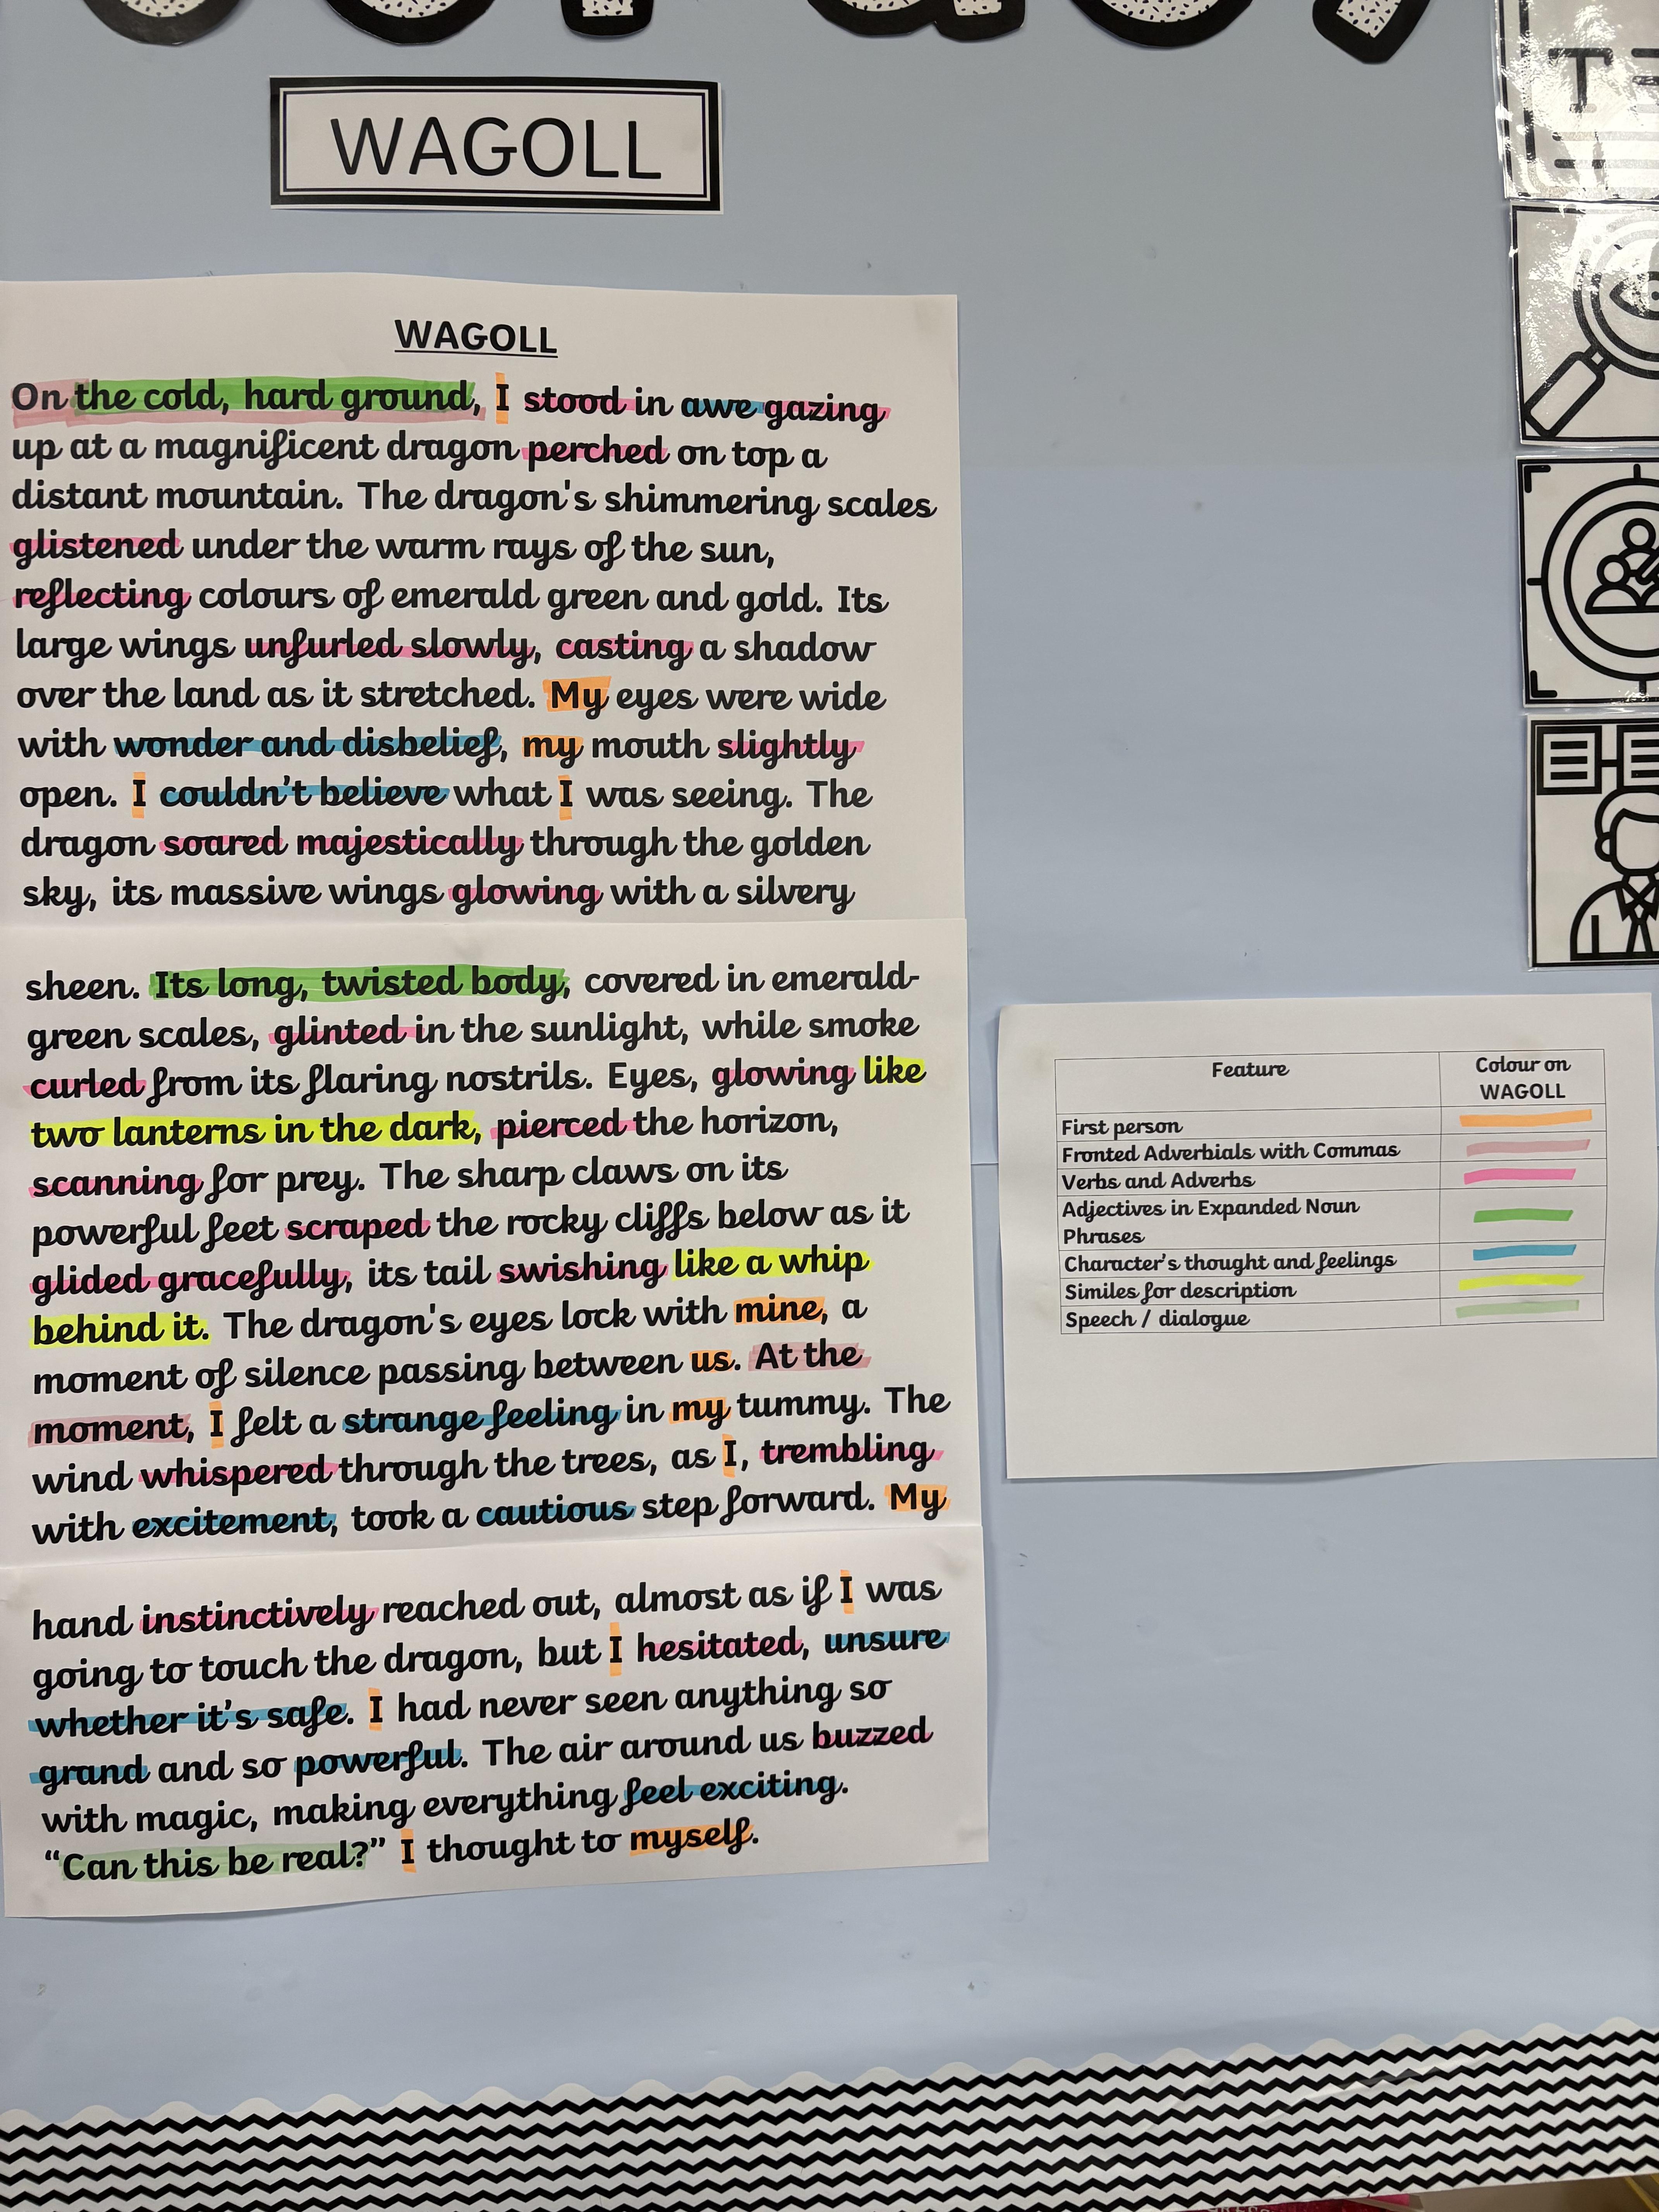 WAGOLL
WAGOLL
On the cold, hard ground, I stood in awe gazing
up at a magnificent dragon perched on top a
distant mountain. The dragon's shimmering scales
glistened under the warm rays of the sun,
reflecting colours of emerald green and gold. Its
large wings unfurled slowly, casting a shadow
over the land as it stretched. My eyes were wide
with wonder and disbelief, my mouth slightly
open. I couldn't believe what I was seeing. The
dragon soared majestically through the golden
sky, its massive wings glowing with a silvery
sheen. Its long, twisted body, covered in emerald-
green scales, glinted in the sunlight, while smoke
curled from its flaring nostrils. Eyes, glowing like
two lanterns in the dark, pierced the horizon,
scanning for prey. The sharp claws on its
powerful feet scraped the rocky cliffs below as it
glided gracefully, its tail swishing like a whip
behind it. The dragon's eyes lock with mine, a
moment of silence passing between us. At the
moment, I felt a strange feeling in my tummy. The
wind whispered through the trees, as I, trembling
with excitement, took a cautious step forward. My
hand instinctively reached out, almost as if I was
going to touch the dragon, but I hesitated, unsure
whether it's safe. I had never seen anything so
grand and so powerful. The air around us buzzed
with magic, making everything feel exciting.
“Can this be real?” I thought to myself.
Feature Colour on
WAGOLL
First person
Fronted Adverbials with Commas
Verbs and Adverbs
Adjectives in Expanded Noun
Phrases
Character's thought and feelings
Similes for description
Speech / dialogue